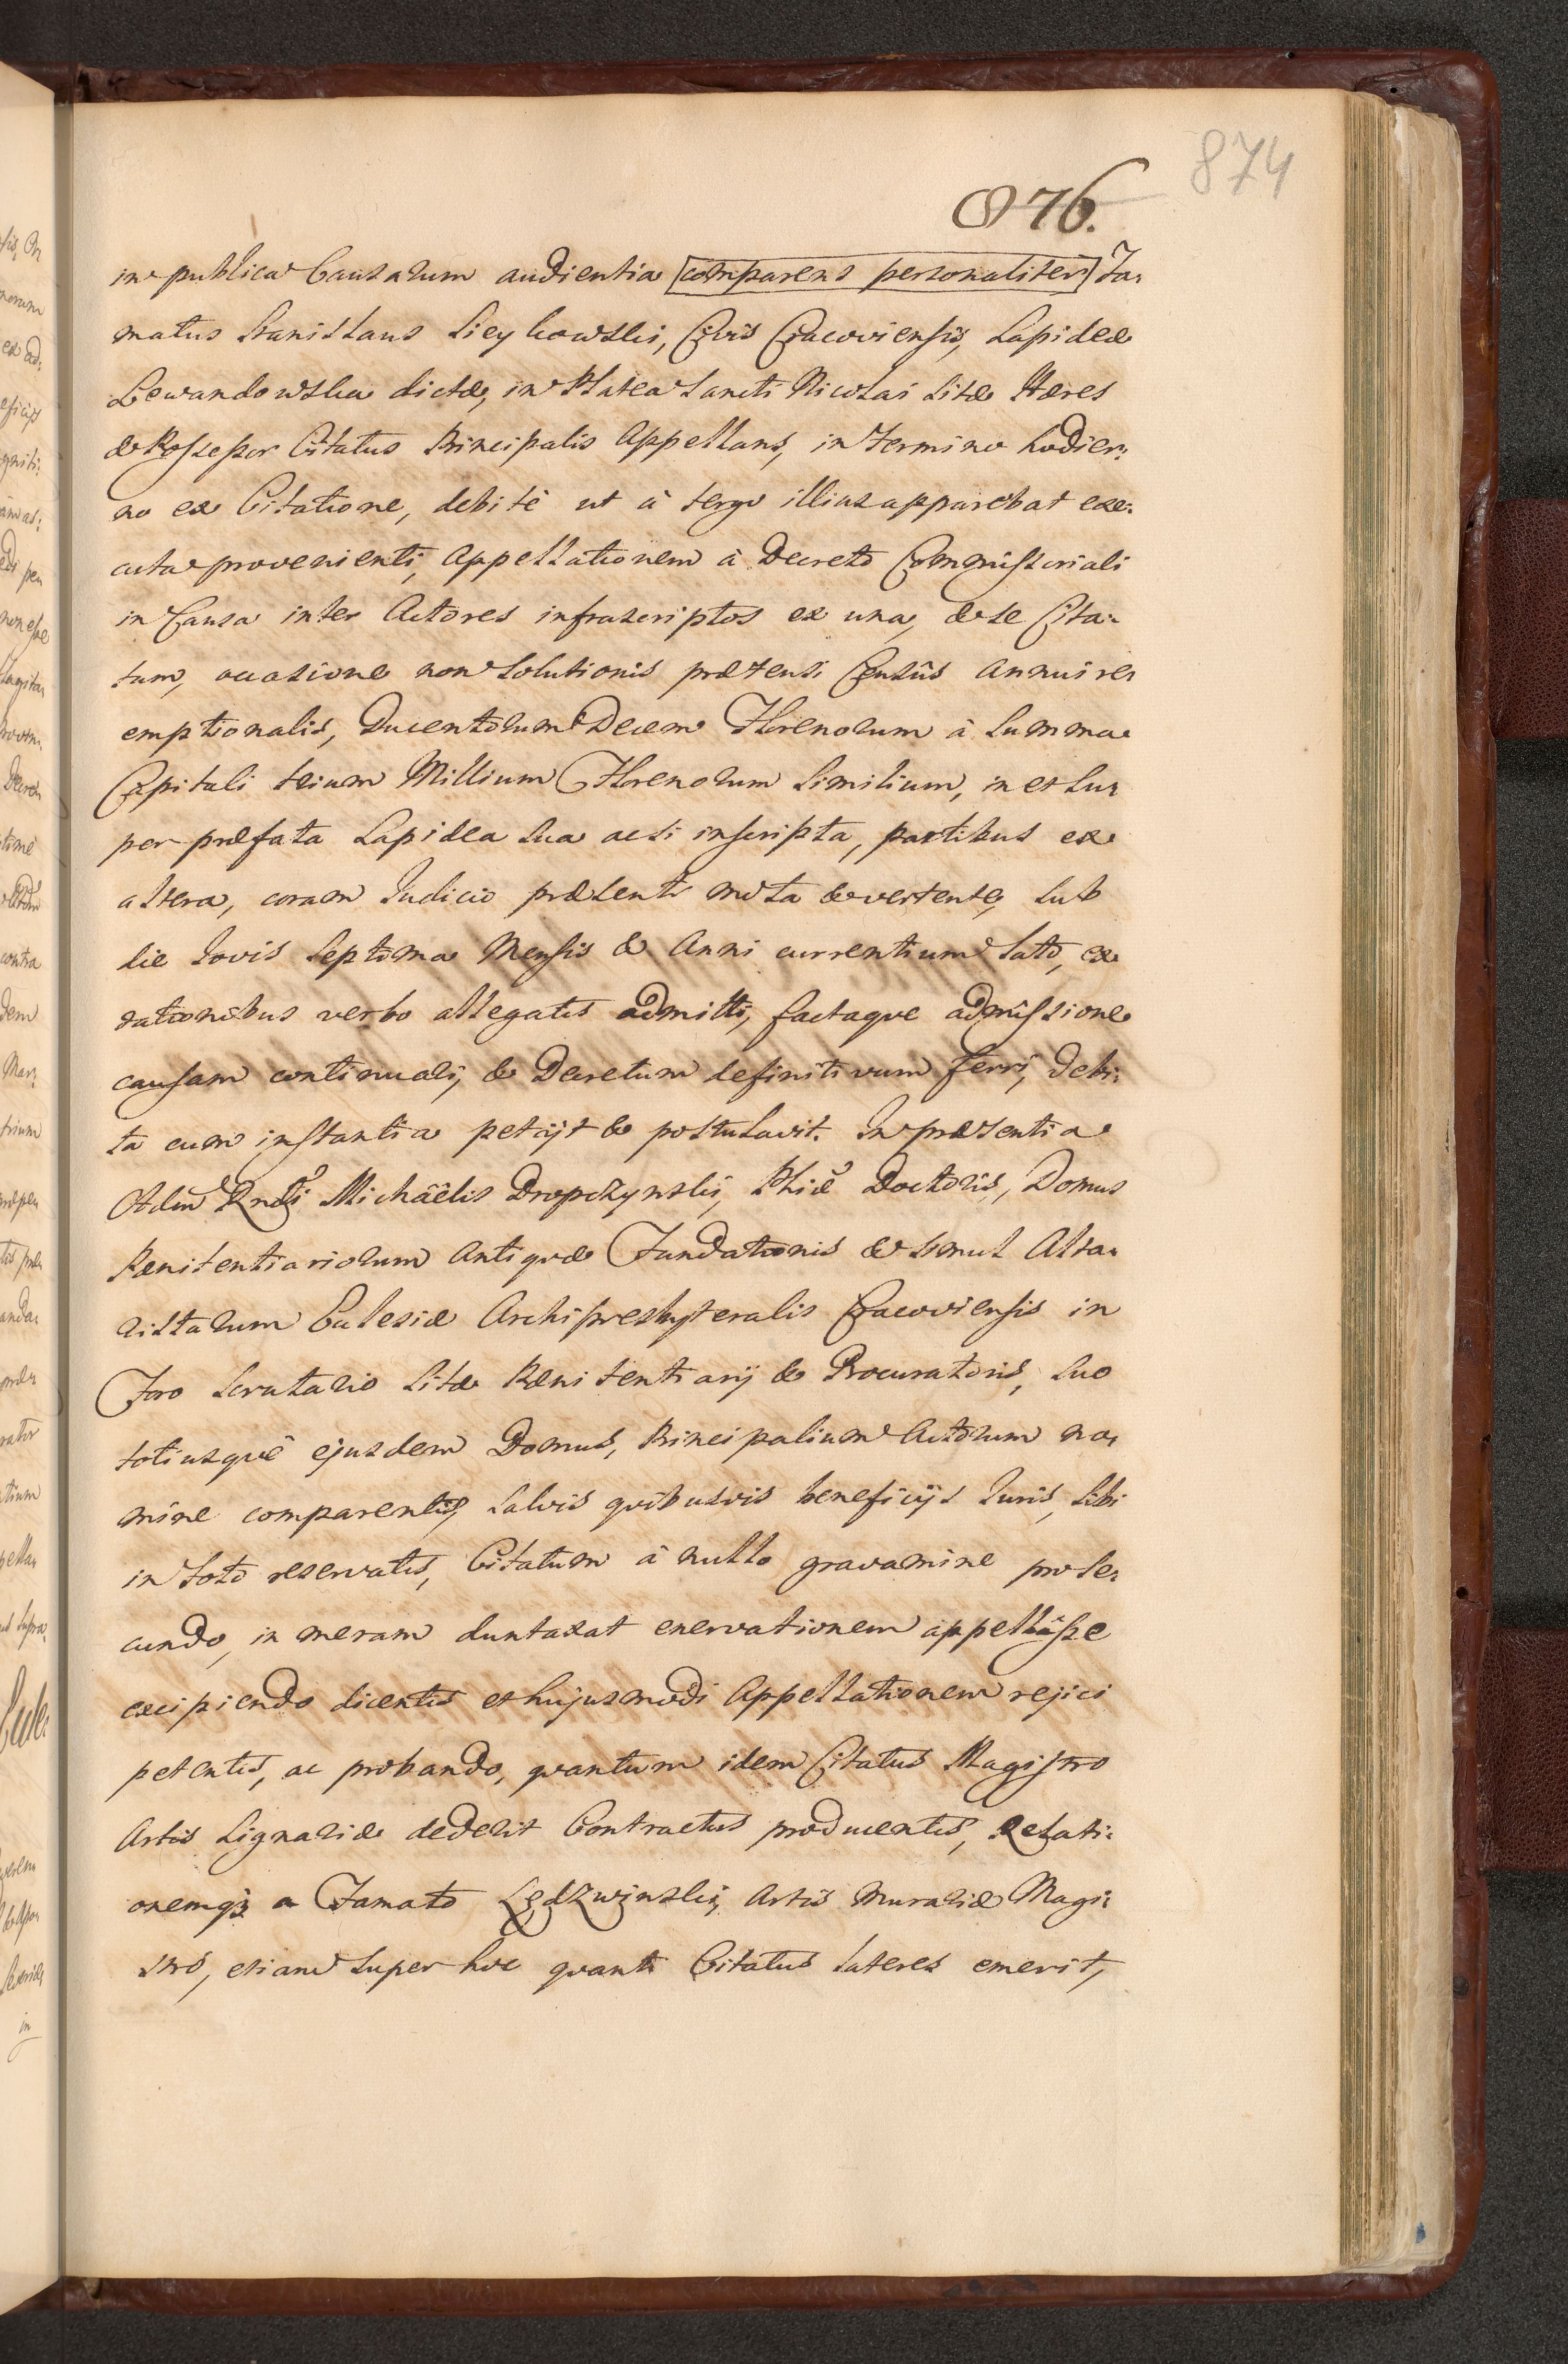 874
876.
in publica Causarum audientia [comparens personaliter] Fa:
matus Stanislaus Sieykowski, Civis Cracoviensis, Lapideæ
Lewandowska dictæ, in Platea Sancti Nicolai Sitæ Hæres
& Possessor Citatus Principalis Appellans, in Termino hodier:
no ex Citatione, debitè ut à tergo illius apparebat exe:
cuta provenienti, Appellationem à Decreto Commissoriali
in Causa inter Actores infrascriptos ex una, & se Cita:
tum, occasione non Solutionis prætensi Censûs Annui re:
emptionalis, Ducentorum Decem Florenorum à Summa
Capitali trium Millium Florenorum Similium, in et Su:
per præfata Lapidea Sua acsi inscripta, partibus ex
altera, coram Judicio præsenti mota & vertente, Sub
die Jovis Septima Mensis & Anni currentium lato, ex
rationibus verbo allegatis admitti, factaque admissione
causam continuari, & Decretum definitivum ferri, debi:
ta cum instantia petijt & postulavit. In præsentia
Adm Rndi Michaëlis Dropczynski, Phiæ Doctoris, Domus
Pænitentiariorum Antiquæ Fundationis & Simul Alta:
ristarum Ecclesiæ Archipresbyteralis Cracoviensis in
Foro Scrutario Sitæ Pænitentiarij & Procuratoris, Suo
totiusquè ejusdem Domus, Principalium Actorum no:
mine comparentis, Salvis quibusvis beneficijs Juris, Sibi
in toto reservatis, Citatum à nullo gravamine prose:
cundo, in meram duntaxat enervationem appellâsse
excipiendo dicentis et hujusmodi Appellationem rejici
petentis, ac probando, quantum idem Citatus Magistro
Artis Lignariæ dederit Contractus producentis, Relati:
onemq3 a Famato Lędzwinski, Artis Murariæ Magi:
stro, etiam Super hoc quanti Citatus Lateres emerit,